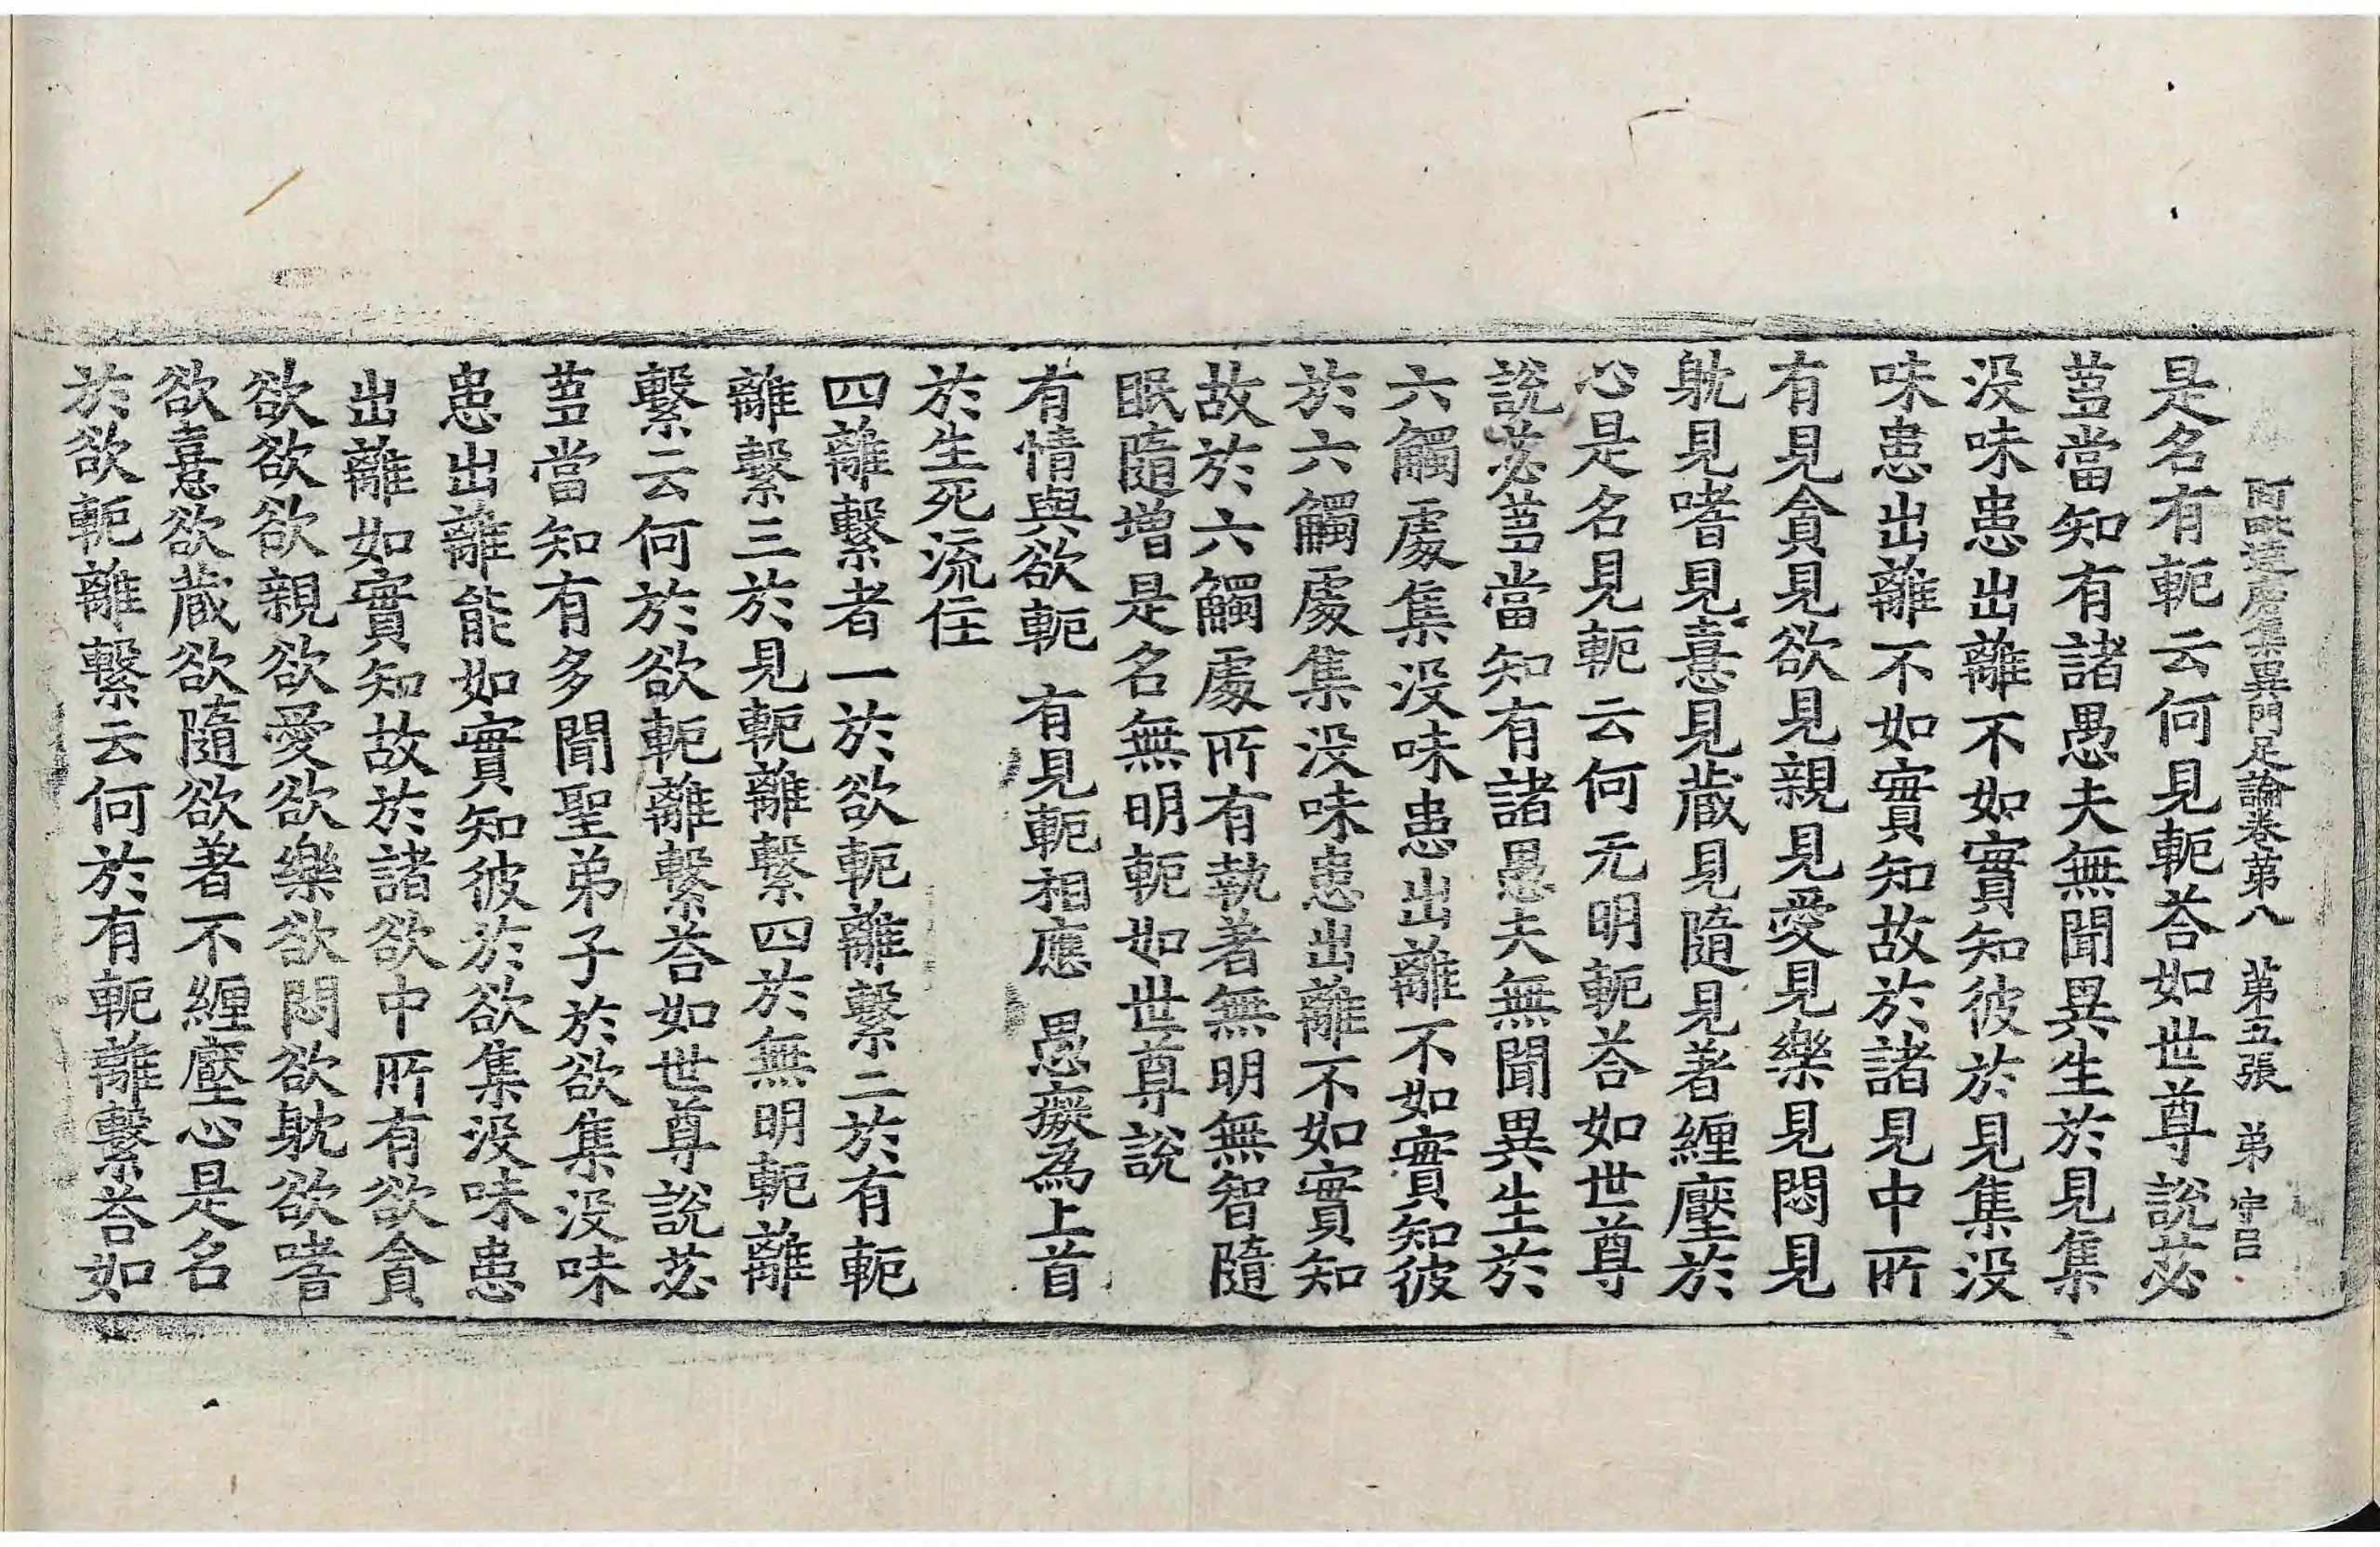 阿毗達磨集異門足論卷第八 第五張 弟
是名有軛云何見軛荅如世尊說苾
蒭當知有諸愚夫無聞異生於見集
没味患出離不如實知彼於見集没
味患出離不如實知故於諸見中所
有見貪見欲見親見愛見樂見悶見
躭見嗜見憙見蔵見隨見著纏壓於
心是名見軛云何无明軛荅如世尊
說苾蒭當知有諸愚夫無聞異生於
六觸處集没味患出離不如實知彼
於六觸處集没味患出離不如實知
故於六觸處所有執著無明無智隨
眠隨增是名無明軛如世尊說
有情與欲軛 有見軛相應 愚癡為上首
於生死流住
四離繫者一於欲軛離繫二於有軛
離繫三於見軛離繫四於無明軛離
繫云何於欲軛離繫荅如世尊說苾
蒭當知有多聞聖弟子於欲集没味
患出離能如實知彼於欲集没味患
出離如實知故於諸欲中所有欲貪
欲欲欲親欲愛欲樂欲悶欲躭欲嗜
欲憙欲蔵欲隨欲著不纏壓心是名
於欲軛離繫云何於有軛離繫荅如